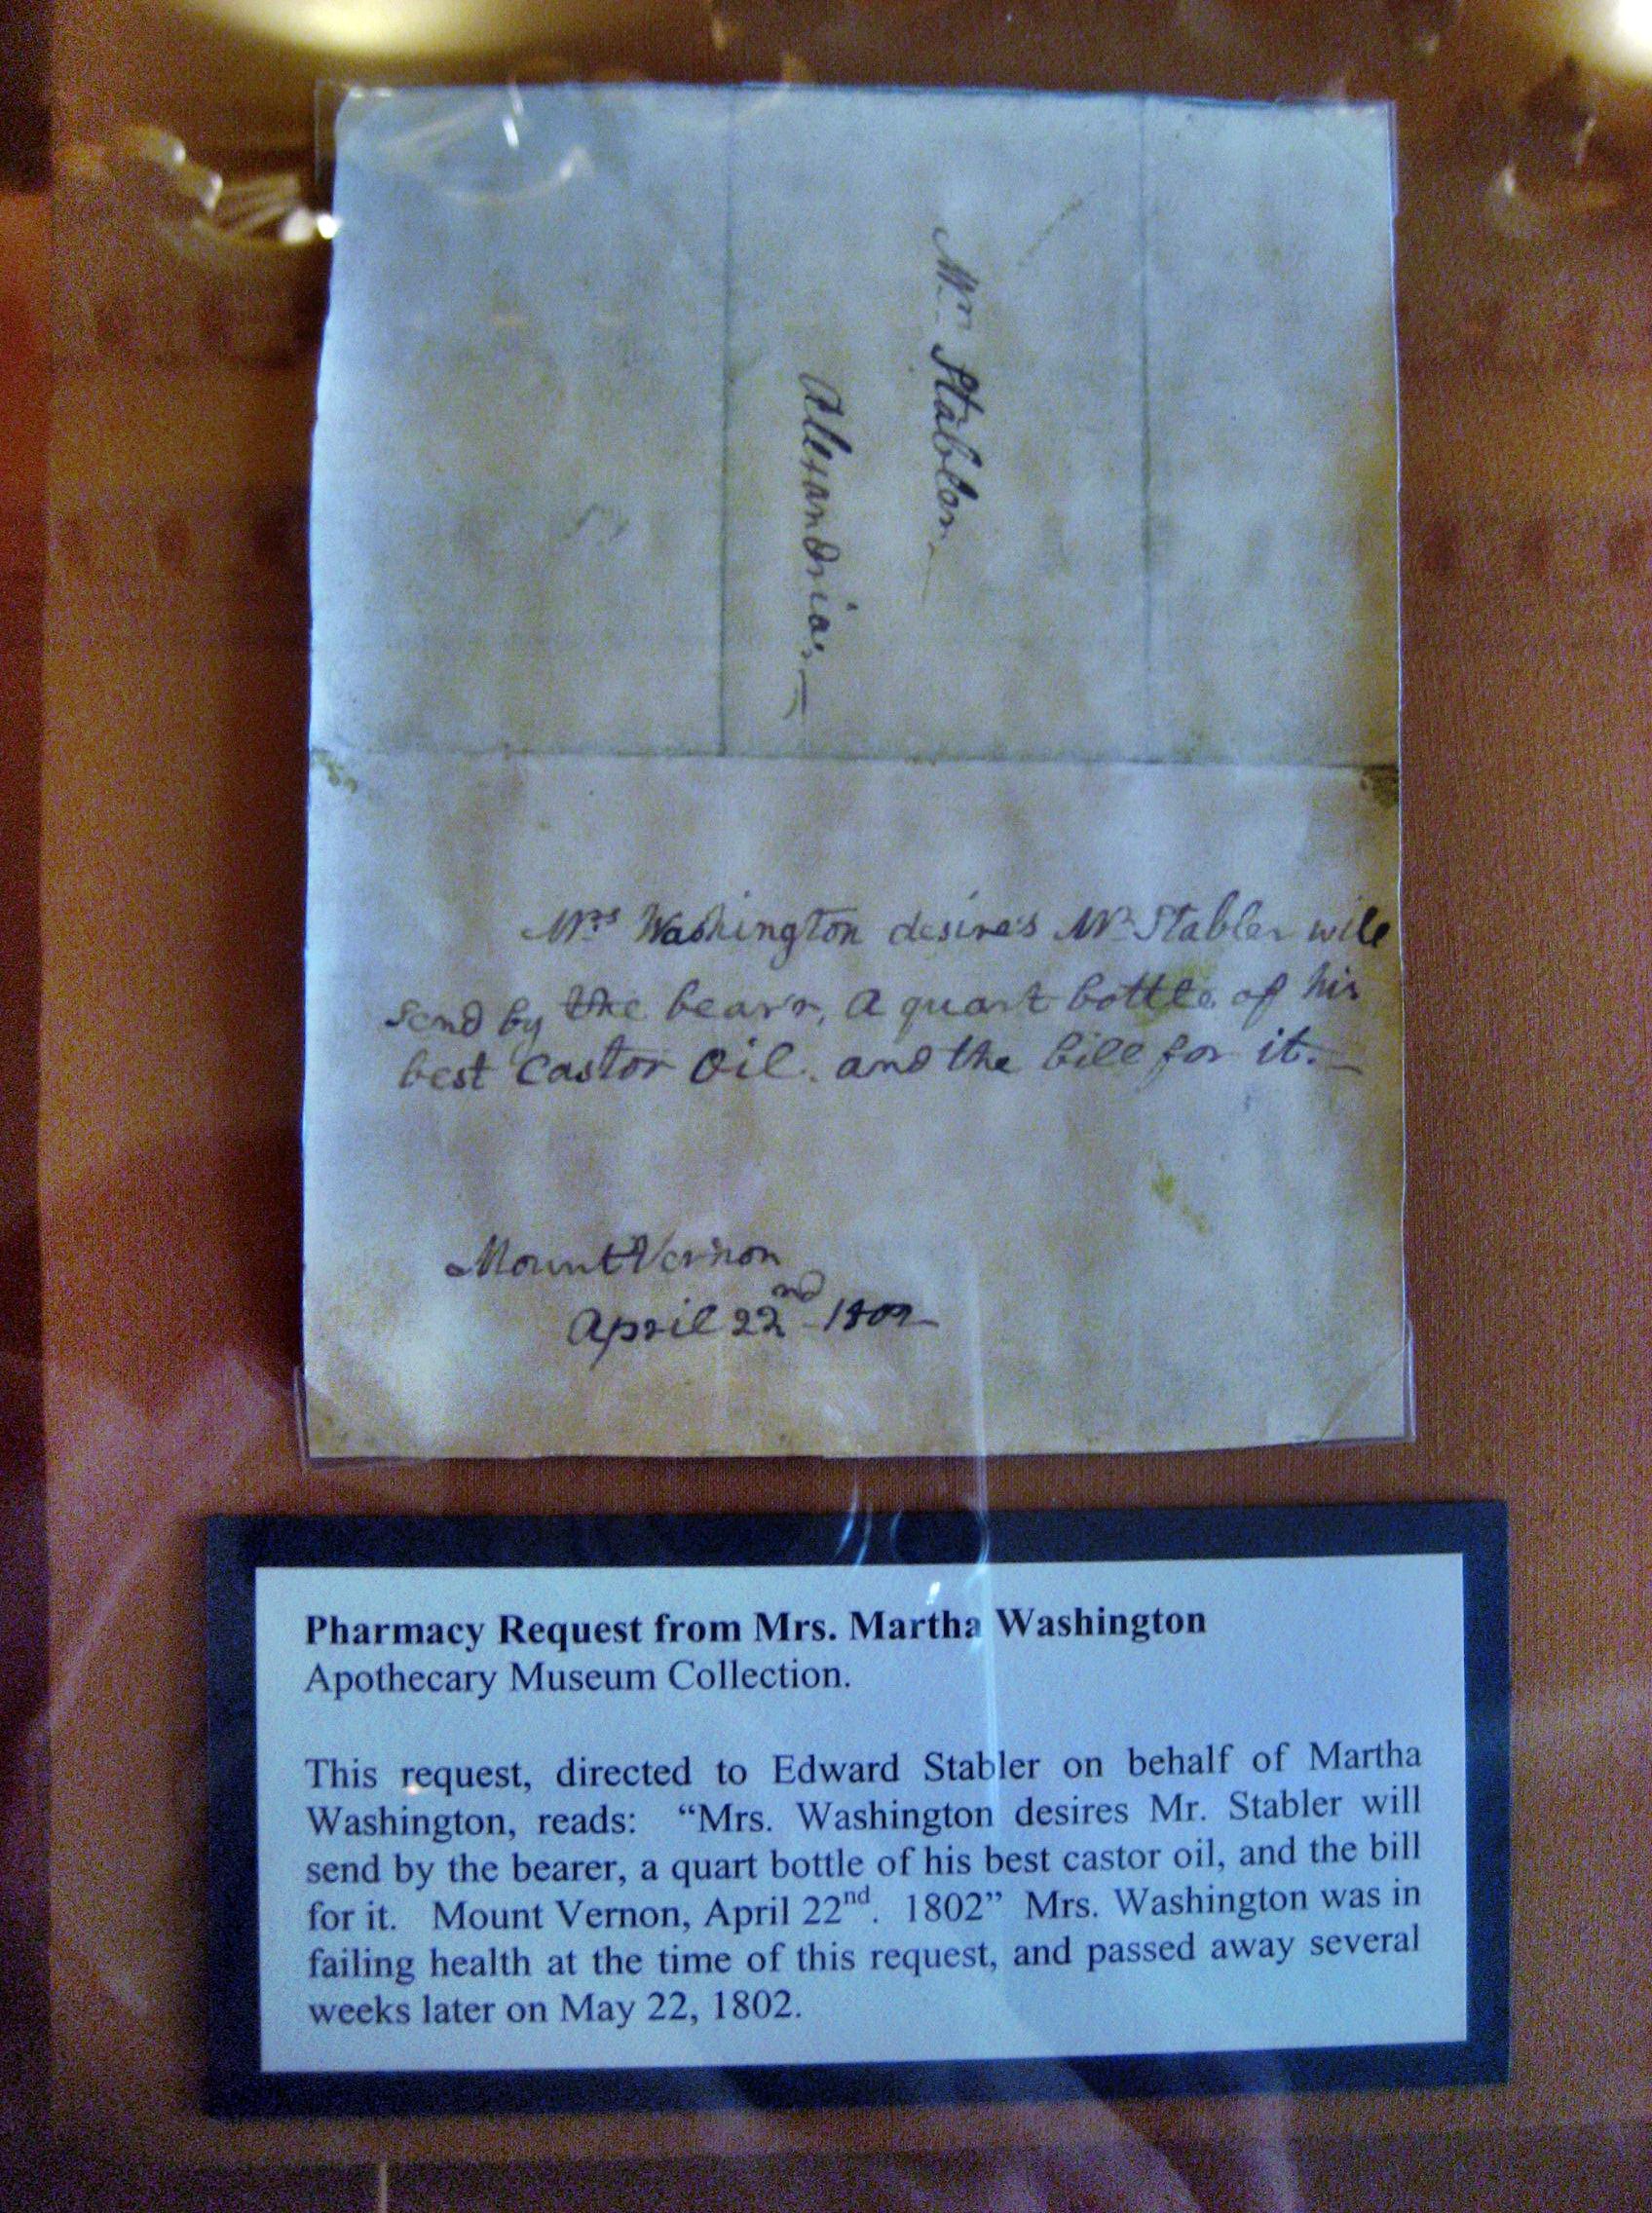 Mr Stabler
Alexandria
Mrs Washington desires Mr Stabler will
send by the bearer, a quart bottle of his
best Castor Oil. and the bill for it.
Mount Vernon
April 22nd 1802
Pharmacy Request from Mrs. Martha Washington
Apothecary Museum Collection.
This request, directed to Edward Stabler on behalf of Martha
Washington, reads: “Mrs. Washington desires Mr. Stabler will
send by the bearer, a quart bottle of his best castor oil, and the bill
for it. Mount Vernon, April 22nd. 1802” Mrs. Washington was in
failing health at the time of this request, and passed away several
weeks later on May 22, 1802.